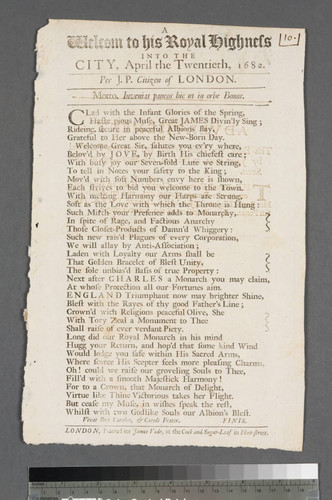 A
Welcom to his Royal Highness
INTO THE
CITY, April the Twentieth, 1682.
Per J. P. Citizen of LONDON.
Motto, Invenias paucos hic at in orbe Bonos.
10.
CLad with the Infant Glories of the Spring,
Haste pious Muse, Great JAMES Divin'ly Sing;
Rideing, secure in peaceful Albions Bay,
Grateful to Her above the New-Born Day.
Welcome Great Sir, salutes you ev'ry where,
Belov'd by JOVE, by Birth His chiefest care;
With busy joy our Seven-fold Lute we String,
To tell in Notes your safety to the King;
Mov'd with soft Numbers envy here is shown,
Each strives to bid you welcome to the Town.
With melting Harmony our Harps are Strong,
Soft as the Love with which the Throne is Hung:
Such Mirth your Presence adds to Monarchy,
In spite of Rage, and Factious Anarchy
Those Closet-Products of Damn'd Whiggery:
Such new rais'd Plagues of every Corporation,
We will allay by Anti-Association;
Laden with Loyalty our Arms shall be
That Golden Bracelet of Blest Unity,
The sole unbias'd Basis of true Property:
Next after CHARLES a Monarch you may claim,
At whose Protection all our Fortunes aim.
ENGLAND Triumphant now may brighter Shine,
Blest with the Rayes of thy good Father's Line;
Crown'd with Religions peaceful Olive, She
With Tory Zeal a Monument to Thee
Shall raise of ever verdant Piety.
Long did our Royal Monarch in his mind
Hugg your Return, and hop'd that some kind Wind
Would lodge you safe within His Sacred Arms,
Where fiercer His Scepter feels more pleasing Charms.
Oh! could we raise our groveling Souls to Thee,
Fill'd with a smooth Majestick Harmony!
For to a Crown, that Monarch of Delight,
Virtue like Thine Victorious takes her Flight.
But cease my Muse, in wishes speak the rest,
Whilst with two Godlike Souls our Albion's Blest.
Vivat Rex Carolus, &
FINIS.
LONDON, Printed for James Vade, at the Cock and Sugar-Loaf in Fleet-street.